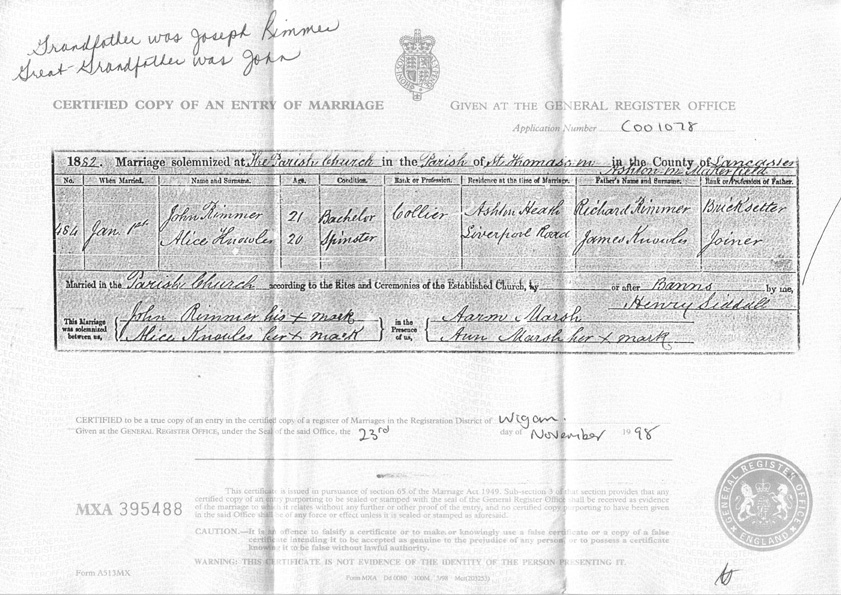 Grandfather was Joseph Rimmer
Great Grandfather was John
CERTIFIED COPY OF AN ENTRY OF MARRIAGE GIVEN AT THE GENERAL REGISTER OFFICE
Application Number C001078
1882. Marriage solemnized at The Parish Church in the Parish of St Thomas in in the County of Lancaster
Ashton in Makerfield
No. When Married. Name and Surname. Age. Condition. Rank or Profession. Residence at the time of Marriage. Father's Name and Surname. Rank or Profession of Father.
John Rimmer 21 Bachelor Collier Ashton Heath Richard Rimmer Bricksetter
484 Jan. 1st Alice Knowles 20 Spinster Liverpool Road James Knowles Joiner
Married in the Parish Church according to the Rites and Ceremonies of the Established Church, by or after Banns by me,
Henry Siddall
This Marriage was solemnized between us, John Rimmer his x mark in the Presence of us, Aarm Marsh
Alice Knowles her x mark Ann Marsh her x mark
CERTIFIED to be a true copy of an entry in the certified copy of a register of Marriages in the Registration District of Wigan.
Given at the GENERAL REGISTER OFFICE, under the Seal of the said Office, the 23rd day of November 1998
MXA 395488
This certificate is issued in pursuance of section 65 of the Marriage Act 1949. Sub-section 3 of that section provides that any
certified copy of an entry purporting to be sealed or stamped with the seal of the General Register Office shall be received as evidence
of the marriage to which it relates without any further or other proof of the entry, and no certified copy purporting to have been given
in the said Office shall be of any force or effect unless it is sealed or stamped as aforesaid.
CAUTION.—It is an offence to falsify a certificate or to make or knowingly use a false certificate or a copy of a false
certificate intending it to be accepted as genuine to the prejudice of any person, or to possess a certificate
knowing it to be false without lawful authority.
WARNING: THIS CERTIFICATE IS NOT EVIDENCE OF THE IDENTITY OF THE PERSON PRESENTING IT.
Form A513MX
GENERAL REGISTER OFFICE
ENGLAND